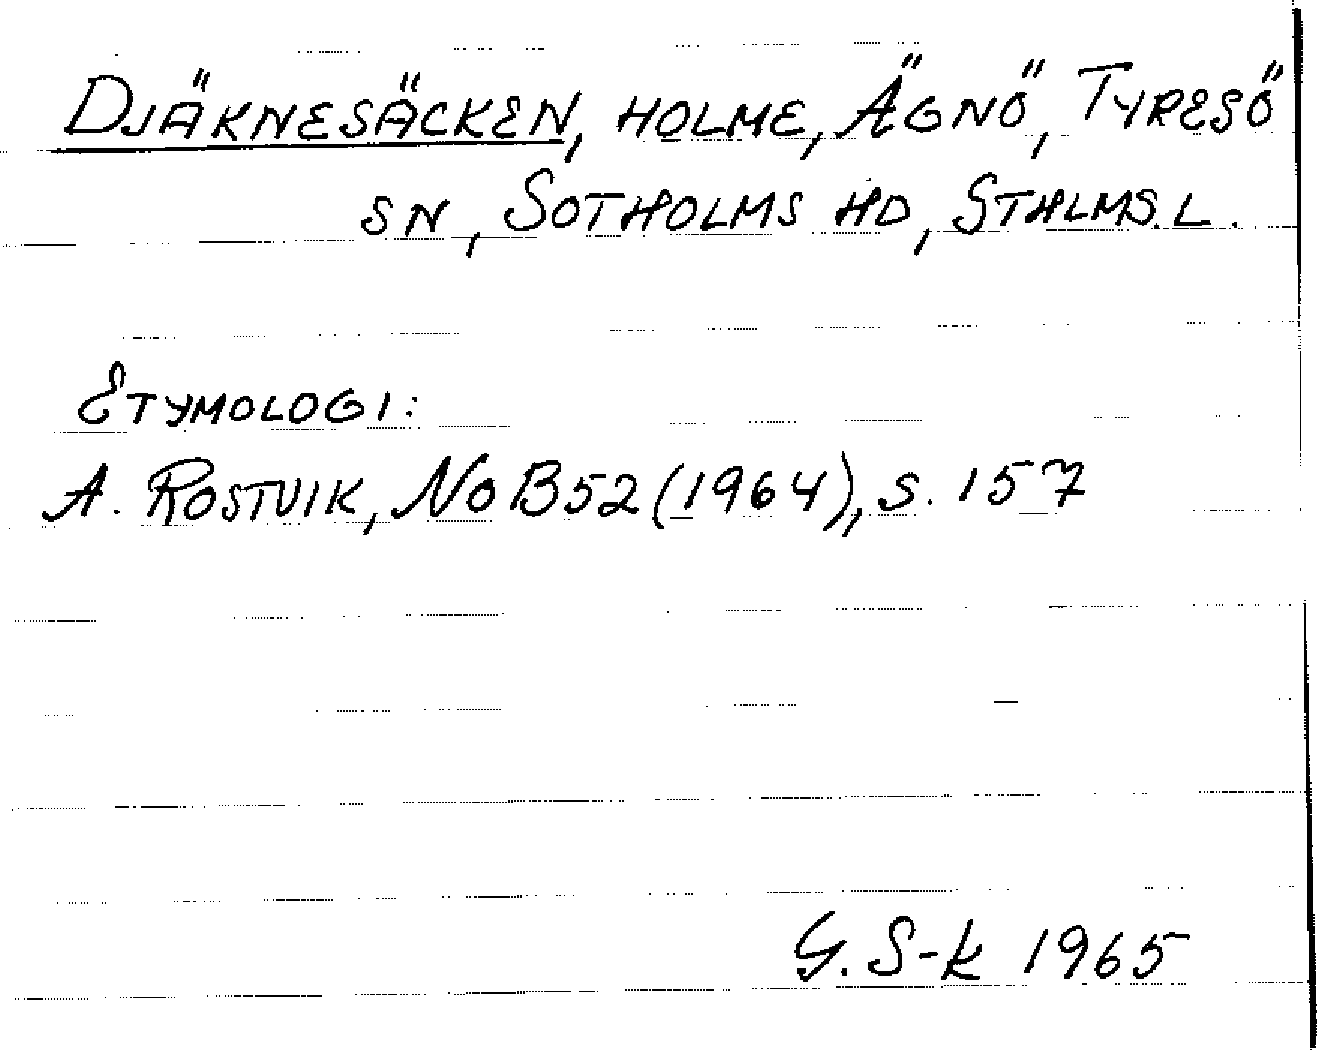 DJÄKNESÄCKEN, HOLME, ÄGNÖ, TYRESÖ
SN, SOTHOLMS HD, STHLMS. L.
ETYMOLOGI:
A. ROSTVIK, NoB 52 (1964), S. 157
G. S-k 1965